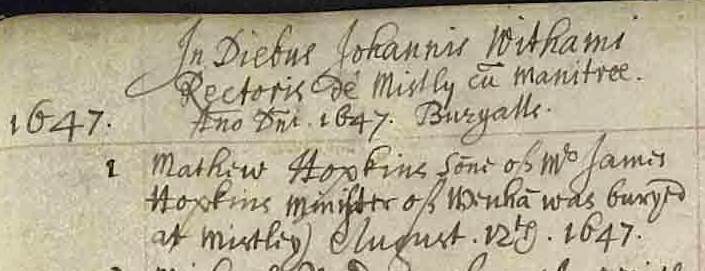 In Diebus Johannis Withami
Rectoris de Mistly cū Manitree.
1647. Ano Dni. 1647. Buryalls.
1 Mathew Hopkins sone of Mr James
Hopkins Minister of Wenhā was buryed
at Mistley August. 12th. 1647.